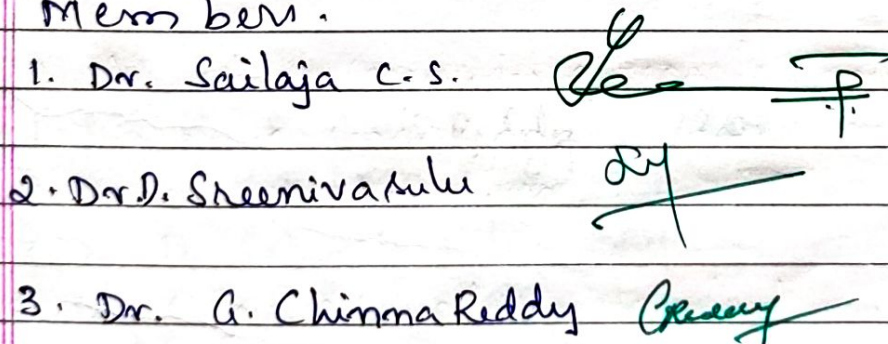 Members.
1. Dr. Sailaja C.S.
2. Dr D. Sreenivasulu
3. Dr. G. Chinna Reddy CReddy